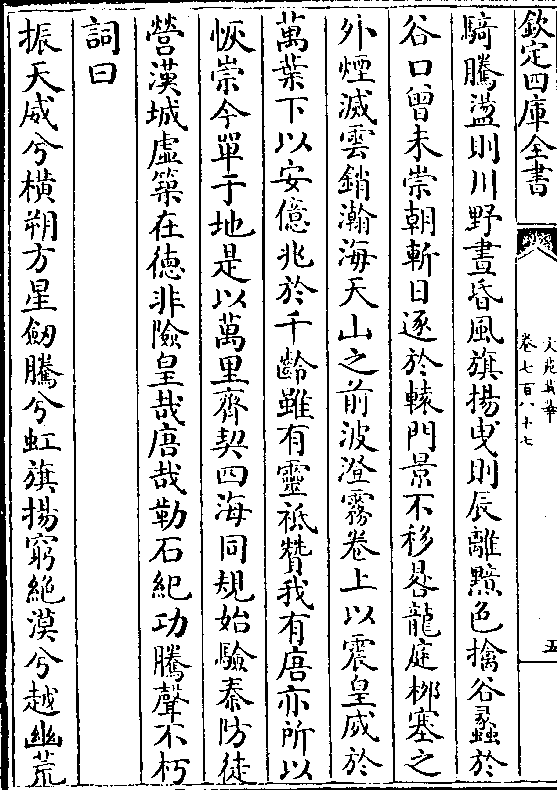 欽定四庫全書
文苑英華
卷七百八十七
五
騎騰盪則川野晝昏風旗揚曳則辰離黲色擒谷蠡於
谷口曾未崇朝斬日逐於轅門景不移晷龍庭柳塞之
外煙滅雲銷瀚海天山之前波澄霧卷上以震皇威於
萬葉下以安億兆於千齡雖有靈祇贊我有唐亦所以
恢崇今單于地是以萬里齊契四海同規始驗秦防徒
營漢城虛築在德非險皇哉唐哉勒石紀功騰聲不朽
詞曰
振天威兮橫朔方星劒騰兮虹旗揚窮絶漠兮越幽荒